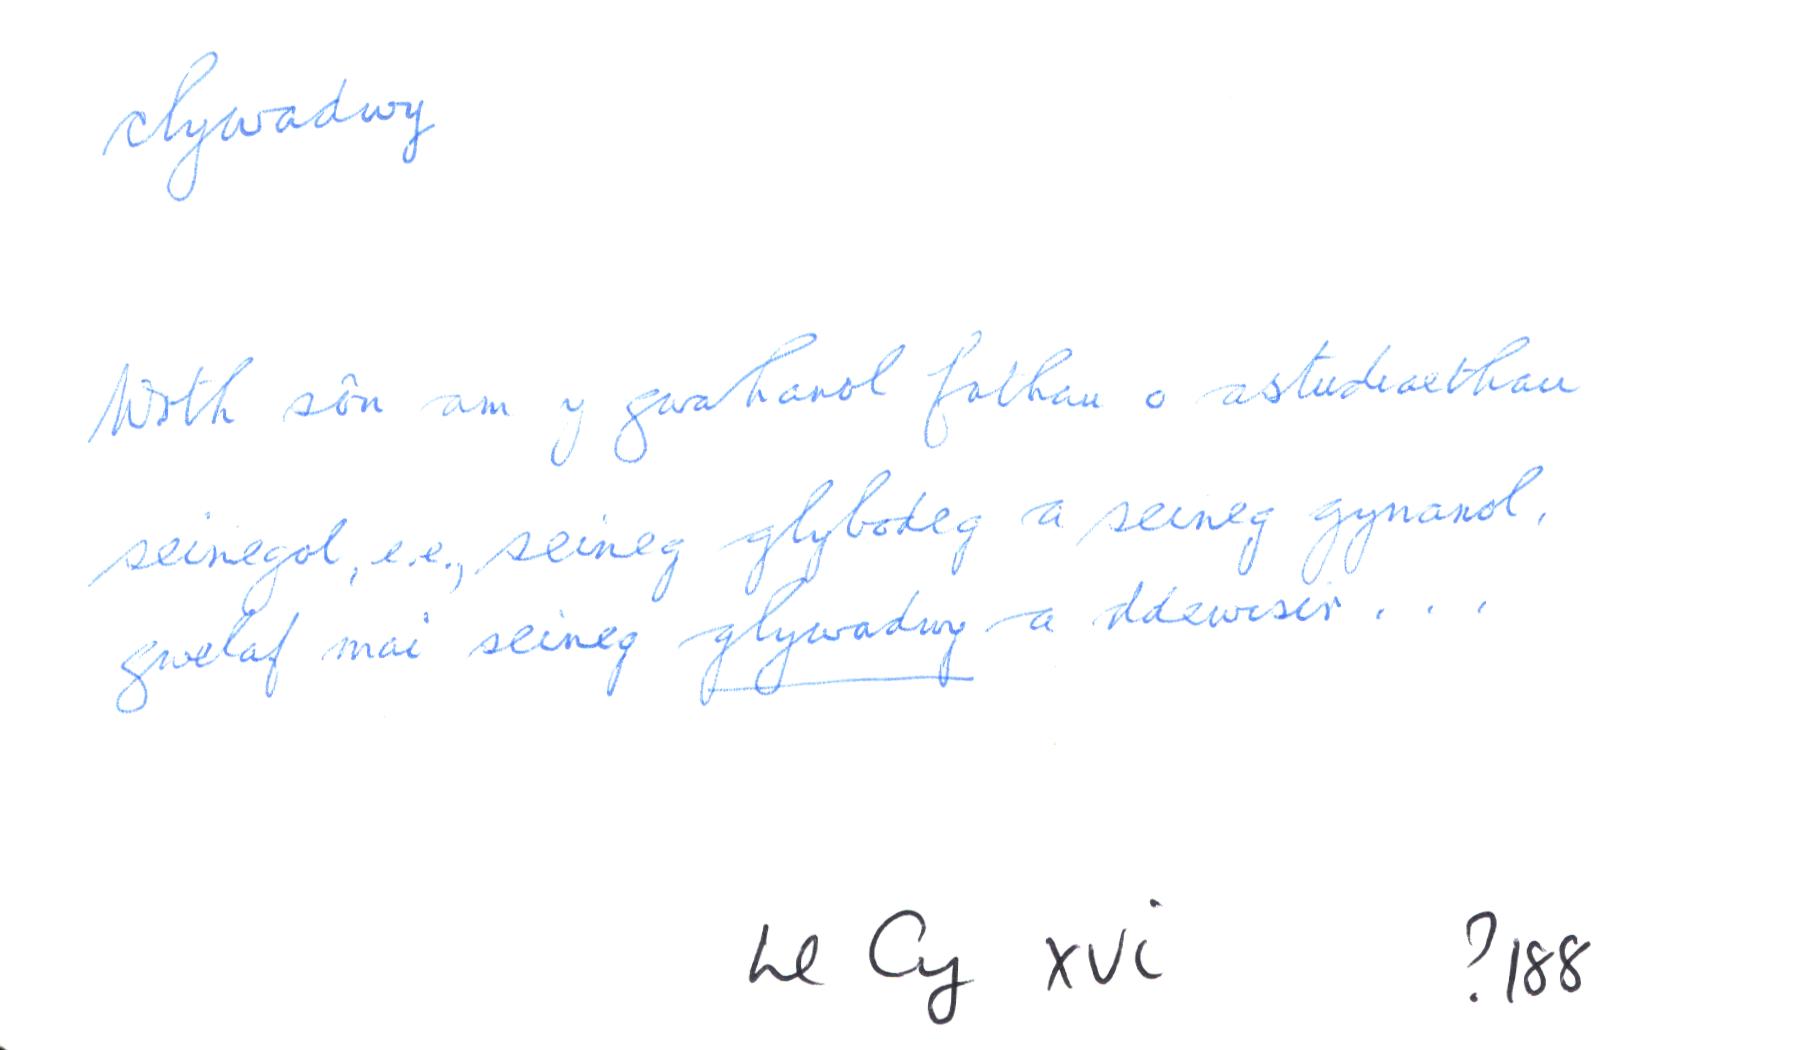 clywadwy
Wrth sôn am y gwahanol fathau o astudiaethau
seinegol, e.e., seineg glybodeg a seineg gynanol,
gwelaf mai seineg glywadwy a ddewisir . . .
Lle Cy XVi ?188